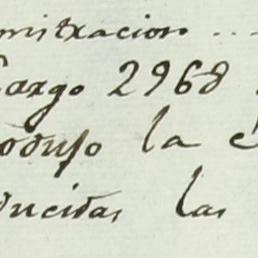 mitracion ...
Cargo 2968
odujo la
ducidas las